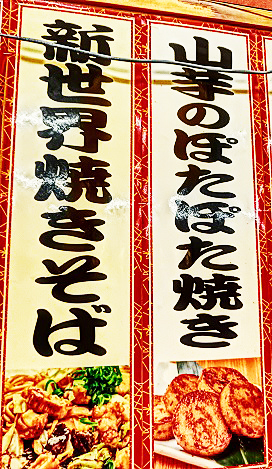 山芋のぽたぽた焼き
新世界焼きそば